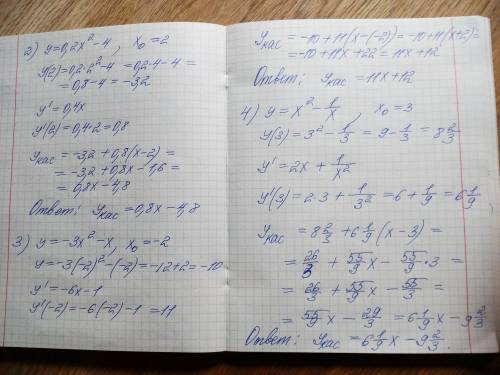 2) y=0,2x²-4, x₀=2
y(2)=0,2·2²-4=0,2·4-4=
=0,8-4=-3,2
y'=0,4x
y'(2)=0,4·2=0,8
yкас=-3,2+0,8(x-2)=
=-3,2+0,8x-1,6=
=0,8x-4,8
Ответ: yкас=0,8x-4,8
3) y=-3x²-x, x₀=-2
y=-3(-2)²-(-2)=-12+2=-10
y'=-6x-1
y'(-2)=-6(-2)-1=11
yкас=-10+11(x-(-2))=-10+11(x+2)=
=-10+11x+22=11x+12
Ответ: yкас=11x+12
4) y=x²-1/x, x₀=3
y(3)=3²-1/3=9-1/3=8 2/3
y'=2x+1/x²
y'(3)=2·3+1/3²=6+1/9=6 1/9
yкас=8 2/3+6 1/9(x-3)=
=26/3+55/9x-55/9·3=
=26/3+55/9x-55/3=
=55/9x-29/3=6 1/9x-9 2/3
Ответ: yкас=6 1/9x-9 2/3.